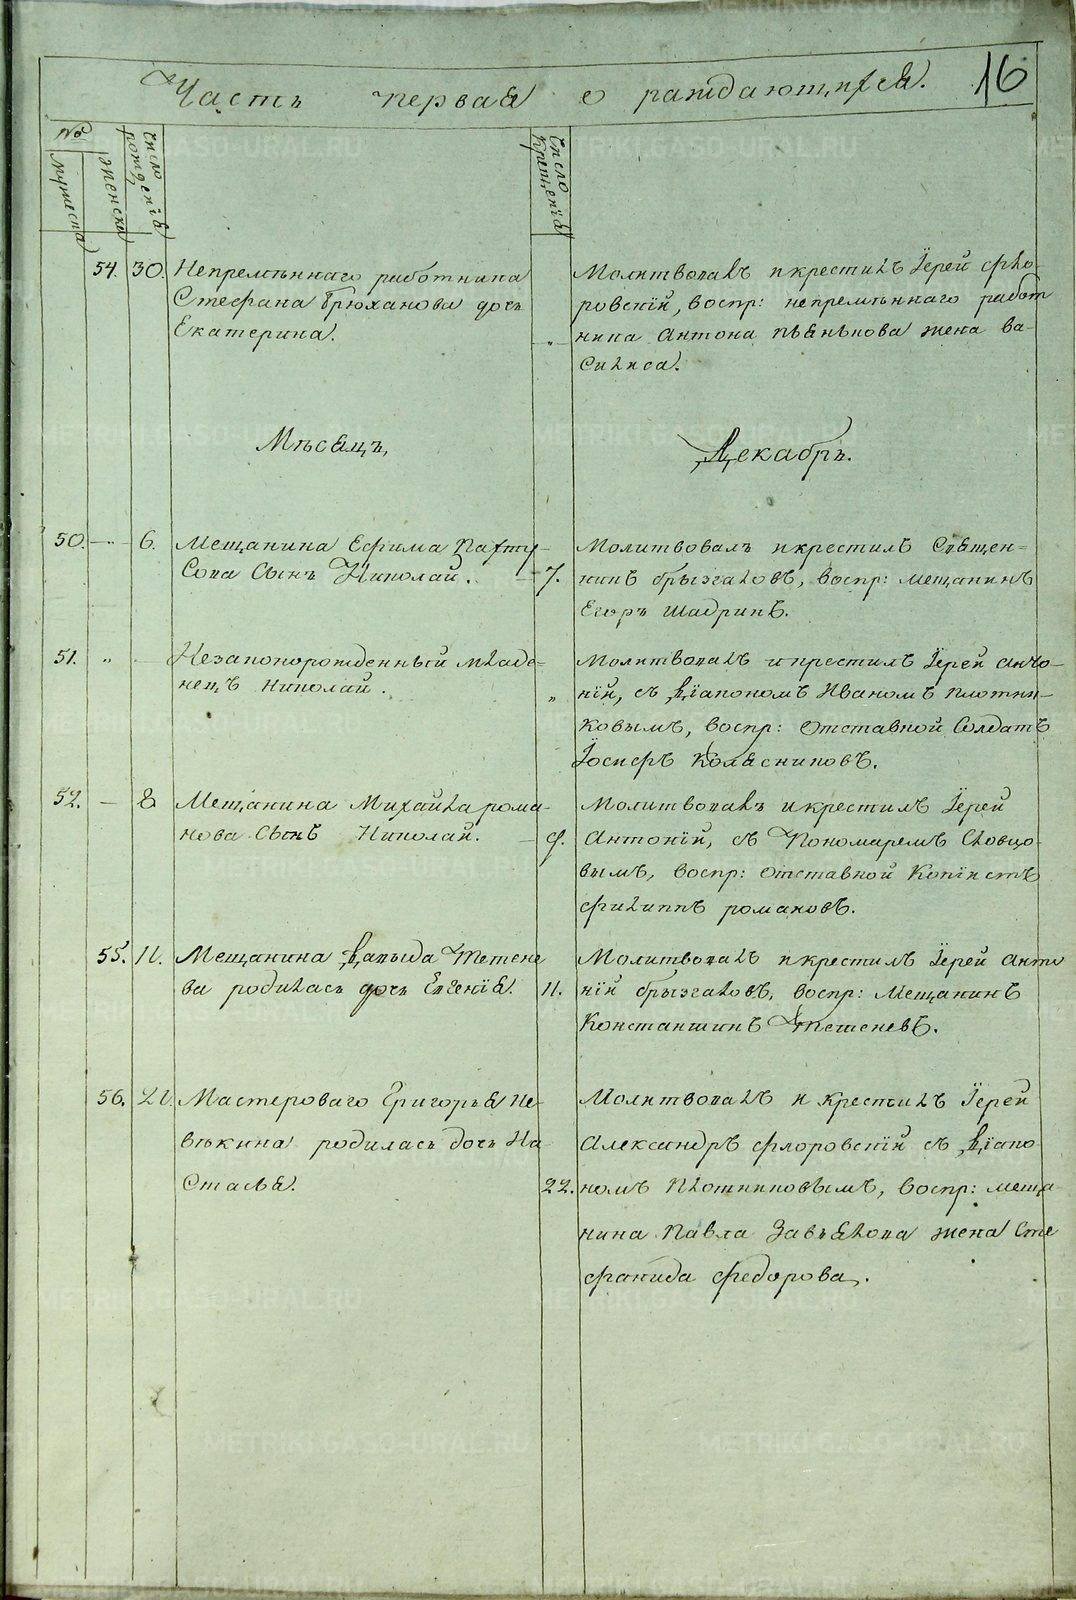 Часть первая о раждающихся.
16
№
мужеска
женска
число рожденія
Число Крещенія
54. 30. Непремѣннаго работника
Стефана Брюханова дочь
Екатерина.
Молитвовалъ и крестилъ Іерей Фло-
ровскій, воспр: непремѣннаго работ
ника Антона пьянкова жена Ва-
силиса.
Мѣсяцъ,
Декабрь.
50. — 6. Мещанина Ефима
Сына Николай.
7.
Молитвовалъ и крестилъ Священ-
никъ брызгаловъ, воспр: мещанинъ
Егоръ Шадринъ.
51. „ Незаконорожденный младе-
нецъ Николай.
„
Молитвовалъ и крестилъ Іерей Анто-
ній, съ Діакономъ Иваномъ плотни-
ковымъ, воспр: Отставной Солдатъ
Іосифъ Колясниковъ.
52. — 8 Мещанина Михайла рома-
нова Сынъ Николай.
9.
Молитвовалъ и крестилъ Іерей
Антоній, съ Пономаремъ Словцо-
вымъ, воспр: отставной Копіистъ
филиппъ романовъ.
55. 11. Мещанина Давыда Тетене
ва родилась дочь Евгенія.
11.
Молитвовалъ и крестилъ Іерей Анто
ній брызгаловъ, воспр: Мещанинъ
Константинъ Тетеневъ.
56. 21. Мастероваго Григорья Пе-
вѣкина родилась дочь На
Стасья.
22.
Молитвовалъ и Крестилъ Іерей
Александръ флоровскій съ Діако
номъ Плотниковымъ, воспр: меща
нина Павла Завьялова жена Сте
фанида федорова.
METRIKI.GASO-URAL.RU